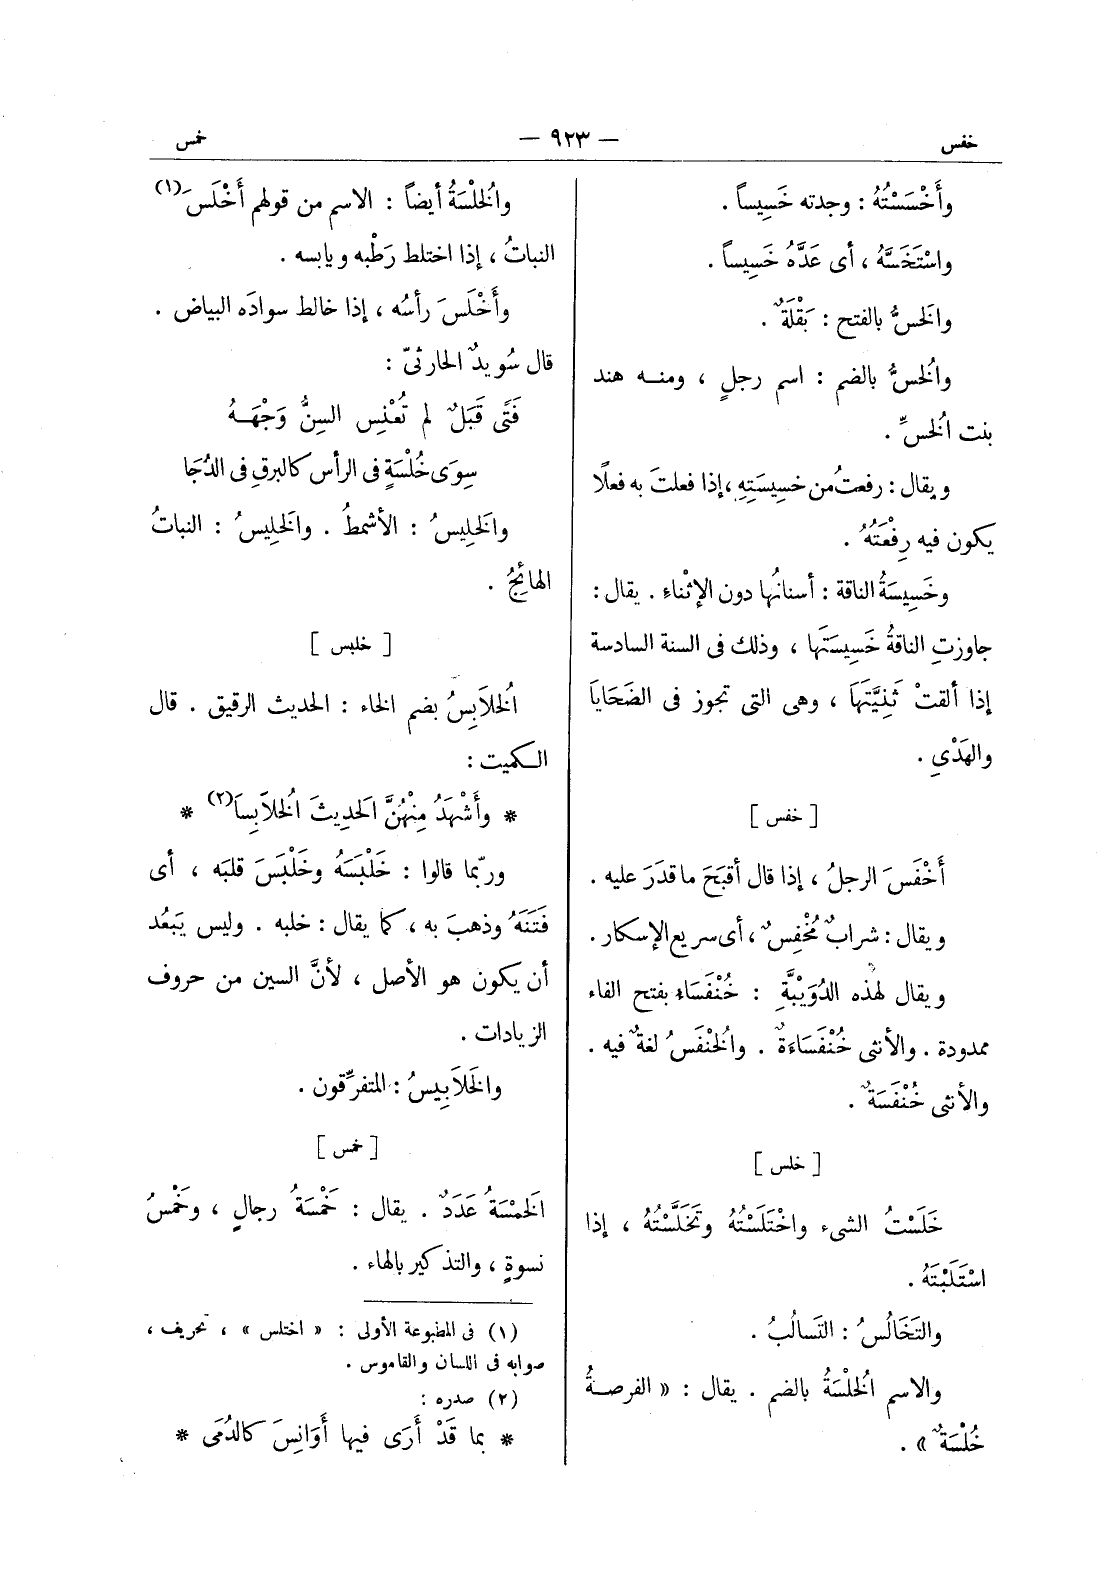 خفس
— ٩٢٣ —
خمس
وأَخْسَسْتُهُ : وجدته خَسِيساً .
واسْتَخَسَّهُ ، أى عَدَّهُ خَسِيساً .
والَخسُّ بالفتح : بَقْلَةٌ .
والُخسُّ بالضم : اسم رجلٍ ، ومنه هند
بنت الُخسِّ .
ويقال : رفعتُ من خسِيسَتِهِ ، إذا فعلتَ به فعلًا
يكون فيه رِفْعَتُهُ .
وخَسِيسَةُ الناقة : أسنانُها دون الإثْناءِ . يقال :
جاوزتِ الناقةُ خَسِيسَتَها ، وذلك فى السنة السادسة
إذا ألقتْ ثَنِيَّتَهَا ، وهى التى تجوز فى الضَحَايَا
والهَدْيِ .
[ خفس ]
أَخْفَسَ الرجلُ ، إذا قال أقبَحَ ما قدَرَ عليه .
ويقال : شرابٌ مُخْفِسٌ ، أى سريع الإسكار .
ويقال لهذه الدُوَيْبَّةِ : خُنْفَسَاء بفتح الفاء
ممدودة . والأنثى خُنْفَسَاءَةٌ . والُخنْفَسُ لغةٌ فيه .
والأنثى خُنْفَسَةٌ .
[ خلس ]
خَلَسْتُ الشىء واخْتَلَسْتُهُ وتَخَلَّسْتُهُ ، إذا
اسْتَلَبْتَهُ .
والتَخَالُسُ : التَسالُبُ .
والاسم الُخلْسَةُ بالضم . يقال : « الفرصةُ
خُلْسَةٌ » .
والُخلْسَةُ أيضاً : الاسم من قولهم أَخْلَسَ (١)
النباتُ ، إذا اختلط رَطْبه ويابسه .
وأَخْلَسَ رأسُه ، إذا خالط سوادَه البياض .
قال سُويدٌ الحارثىّ :
فَتًى قَبَلٌ لم تُعْنِس السِنُّ وَجْهَهُ
سِوَى خُلْسَةٍ فى الرأس كالبرقِ فى الدُجَا
والَخلِيسُ : الأشمطُ . والَخلِيسُ : النباتُ
الهائِجُ .
[ خلبس ]
الُخلَابِسُ بضم الخاء : الحديث الرقيق . قال
الكميت :
* وأَشْهَدُ مِنْهُنَّ الَحدِيثَ الُخلاَبِسَا (٢) *
وربّما قالوا : خَلْبَسَهُ وخَلْبَسَ قلبَه ، أى
فَتَنَهُ وذهبَ به ، كما يقال : خلبه . وليس يَبعُد
أن يكون هو الأصل ، لأنَّ السين من حروف
الزيادات .
والَخلاَبِيسُ : المتفرِّقون .
[ خمس ]
الَخمْسَةُ عَدَدٌ . يقال : خَمْسَةُ رجالٍ ، وخَمْسُ
نسوةٍ ، والتذكير بالهاء .
(١) فى المطبوعة الأولى : « اختلس » ، تحريف ،
صوابه فى اللسان والقاموس .
(٢) صدره :
* بما قَدْ أَرَى فيها أَوَانِسَ كالدُمَى *